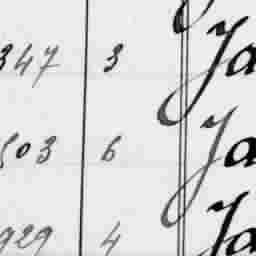 347 3 Ja
503 6 Ja
929 4 Ja